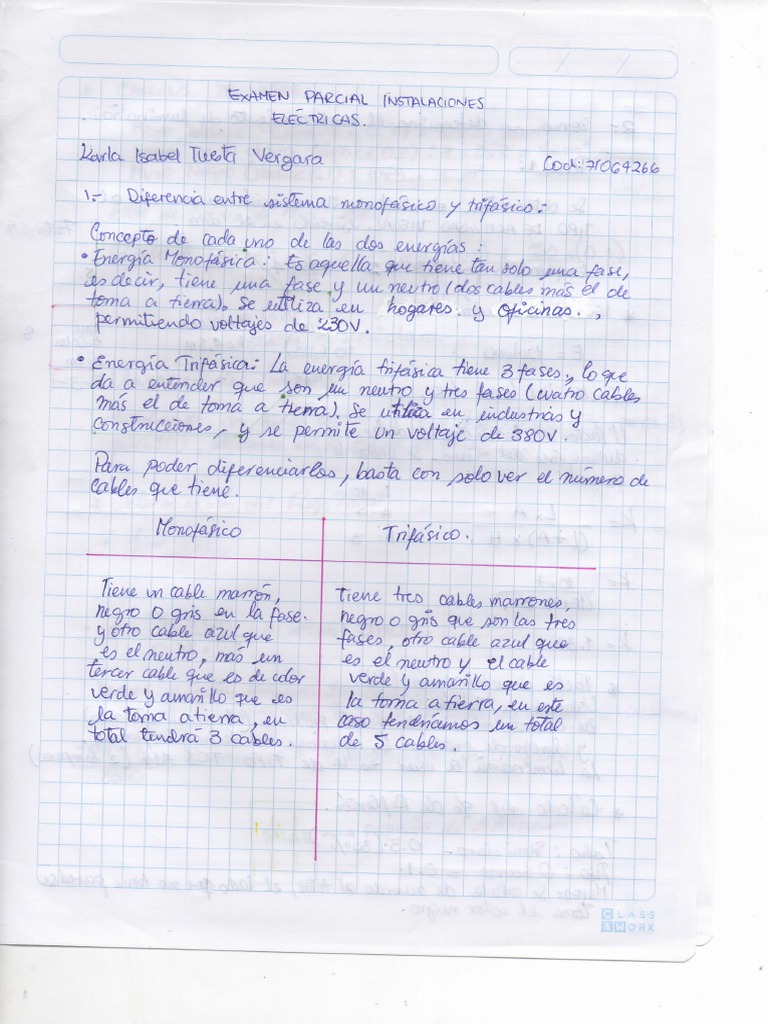 EXAMEN PARCIAL INSTALACIONES
ELÉCTRICAS.
Karla Isabel Tuesta Vergara Cod: 71064266
1.- Diferencia entre sistema monofásico y trifásico:
Concepto de cada uno de las dos energías:
• Energía Monofásica: Es aquella que tiene tan solo una fase,
es decir, tiene una fase y un neutro (dos cables más el de
toma a tierra). Se utiliza en hogares y oficinas.,
permitiendo voltajes de 230V.
• Energía Trifásica: La energía trifásica tiene 3 fases, lo que
da a entender que son un neutro y tres fases (cuatro cables
más el de toma a tierra). Se utiliza en industrias y
construcciones, y se permite un voltaje de 380V.
Para poder diferenciarlos, basta con solo ver el número de
cables que tiene.
Monofásico
Tiene un cable marrón,
negro o gris en la fase.
y otro cable azul que
es el neutro, más un
tercer cable que es de color
verde y amarillo que es
la toma a tierra, en
total tendrá 3 cables.
Trifásico.
Tiene tres cables marrones,
negro o gris que son las tres
fases, otro cable azul que
es el neutro y el cable
verde y amarillo que es
la toma a tierra, en este
caso tendríamos un total
de 5 cables.
CLASS
&WORK